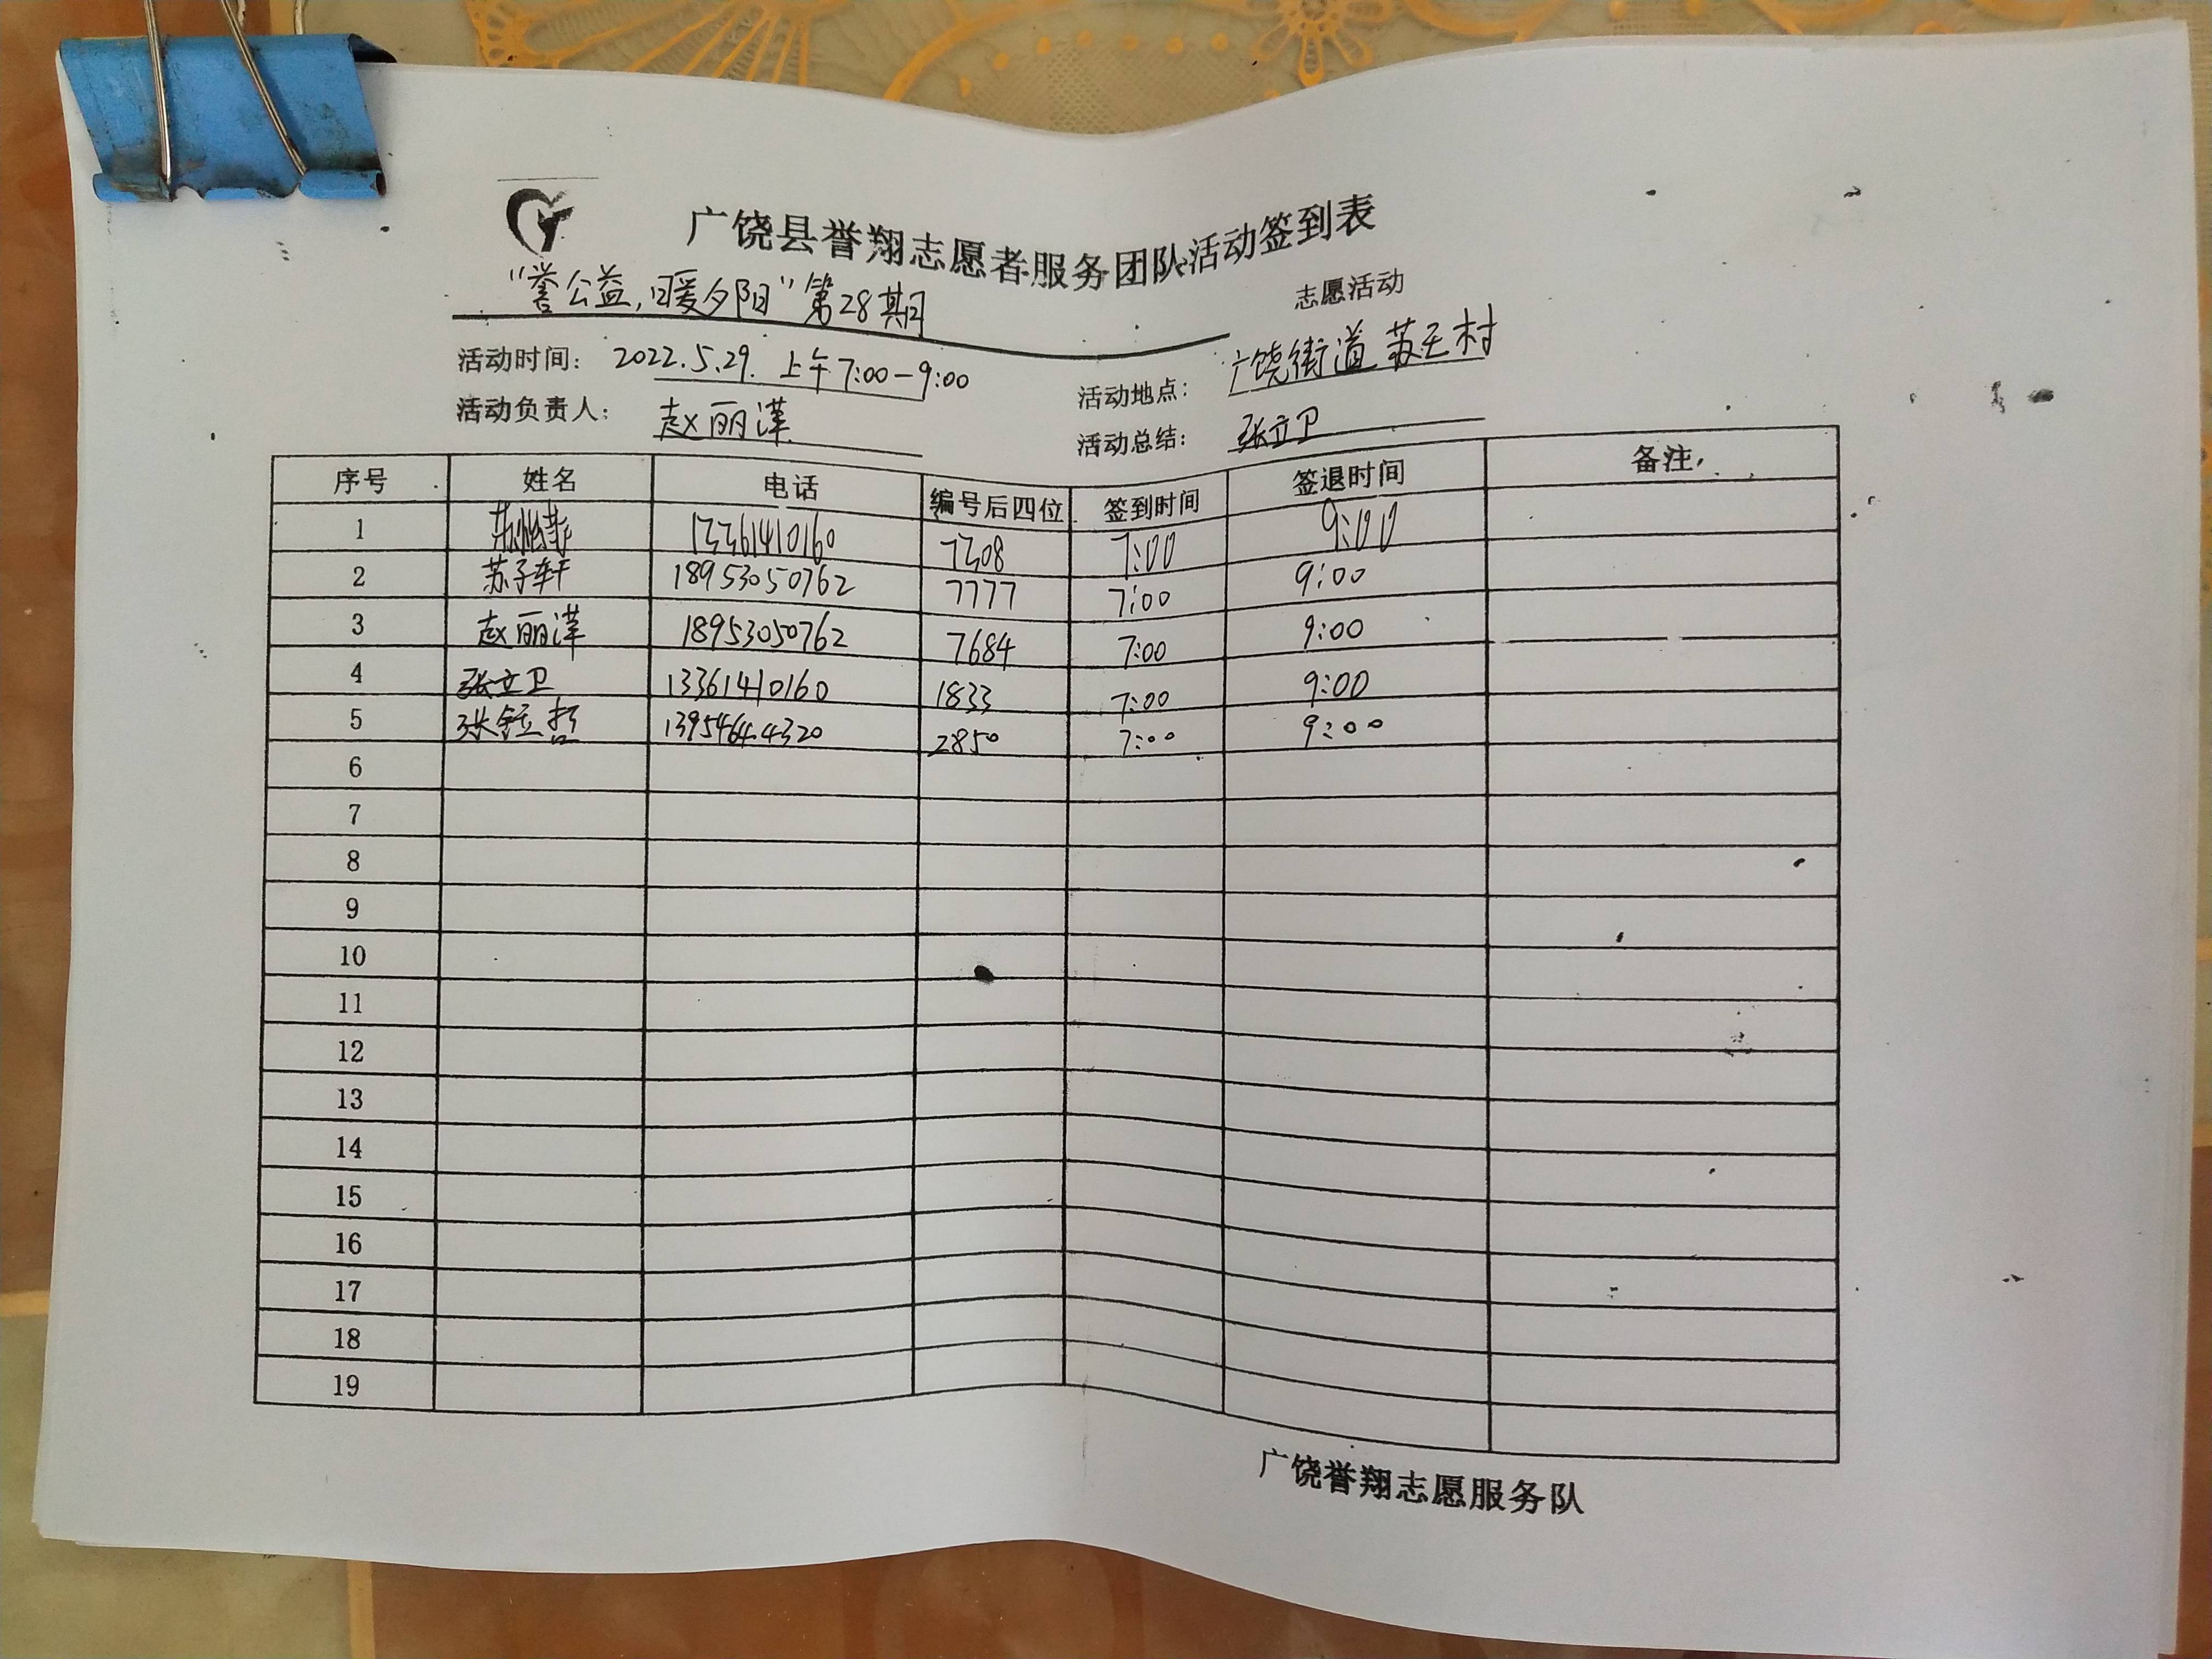 广饶县誉翔志愿者服务团队活动签到表
"誉公益,暖夕阳"第28期 志愿活动
活动时间: 2022.5.29. 上午7:00-9:00 活动地点: 广饶街道苏王村
活动负责人: 赵丽萍 活动总结: 张立卫
序号 姓名 电话 编号后四位 签到时间 签退时间 备注
1 13361410160 7308 7:00 9:00
2 苏子轩 18953050762 7777 7:00 9:00
3 赵丽萍 18953050762 7684 7:00 9:00
4 张立卫 13361410160 1833 7:00 9:00
5 张钰哲 13954644320 2850 7:00 9:00
6
7
8
9
10
11
12
13
14
15
16
17
18
19
广饶誉翔志愿服务队